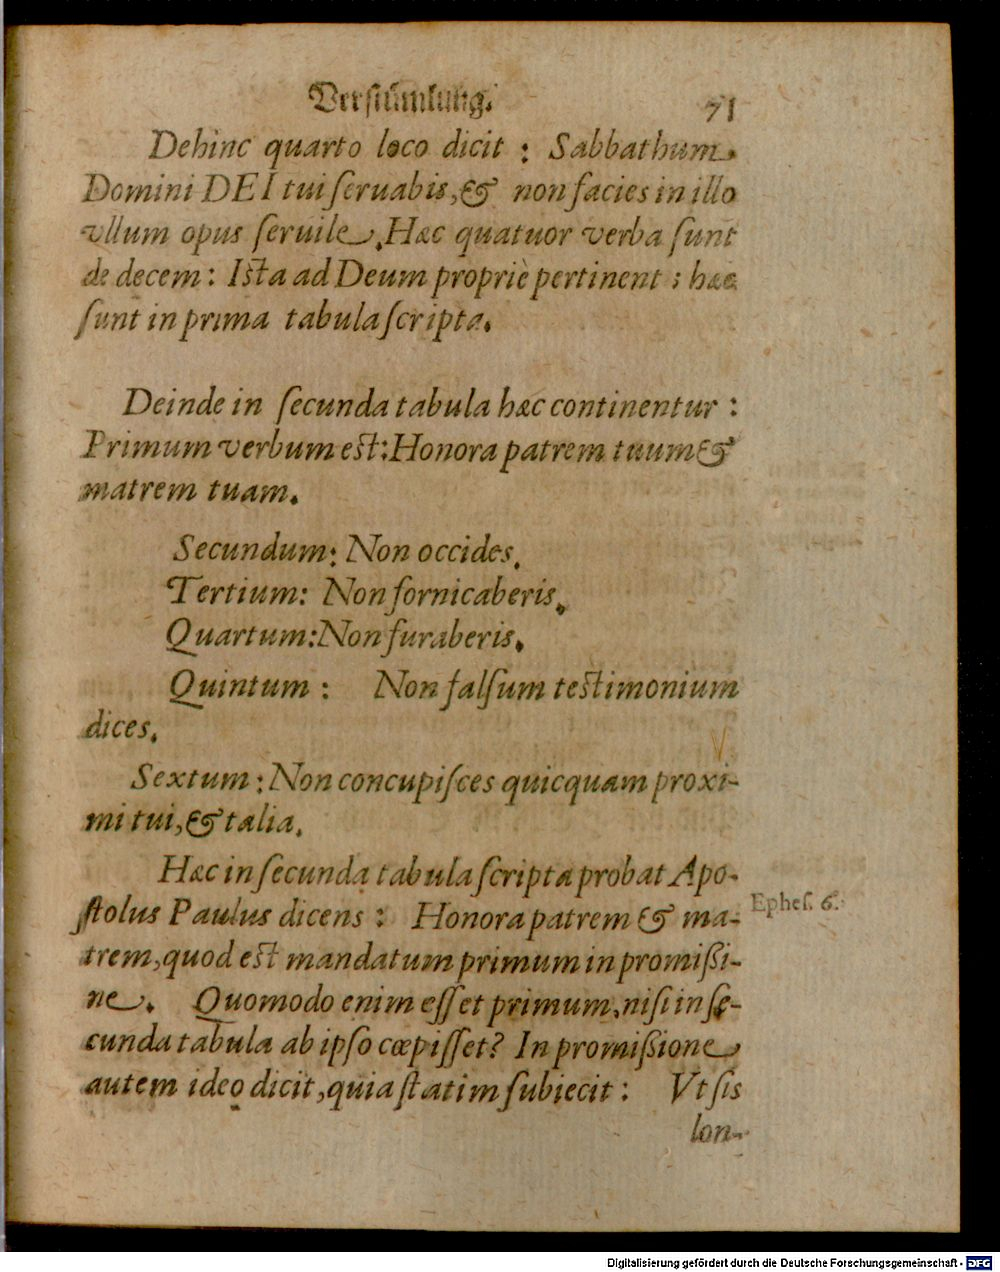 Versümlung. 71
Dehinc quarto loco dicit : Sabbathum
Domini DEI tui ſeruabis, & non facies in illo
vllum opus ſeruile. Hæc quatuor verba ſunt
de decem: Iſta ad Deum propriè pertinent : hæc
ſunt in prima tabula ſcripta.
Deinde in ſecunda tabula hæc continentur :
Primum verbum eſt: Honora patrem tuum &
matrem tuam.
Secundum: Non occides.
Tertium: Non fornicaberis.
Quartum: Non furaberis.
Quintum : Non falſum teſtimonium
dices.
Sextum : Non concupiſces quicquam proxi-
mi tui, & talia.
Hæc in ſecunda tabula ſcripta probat Apo-
ſtolus Paulus dicens : Honora patrem & ma-
Epheſ. 6.
trem, quod eſt mandatum primum in promißi-
ne. Quomodo enim eſſet primum, niſi in ſe-
cunda tabula ab ipſo cœpiſſet? In promißione
autem ideo dicit, quia ſtatim ſubiecit : Vt ſis
lon-
Digitalisierung gefördert durch die Deutsche Forschungsgemeinschaft - DFG